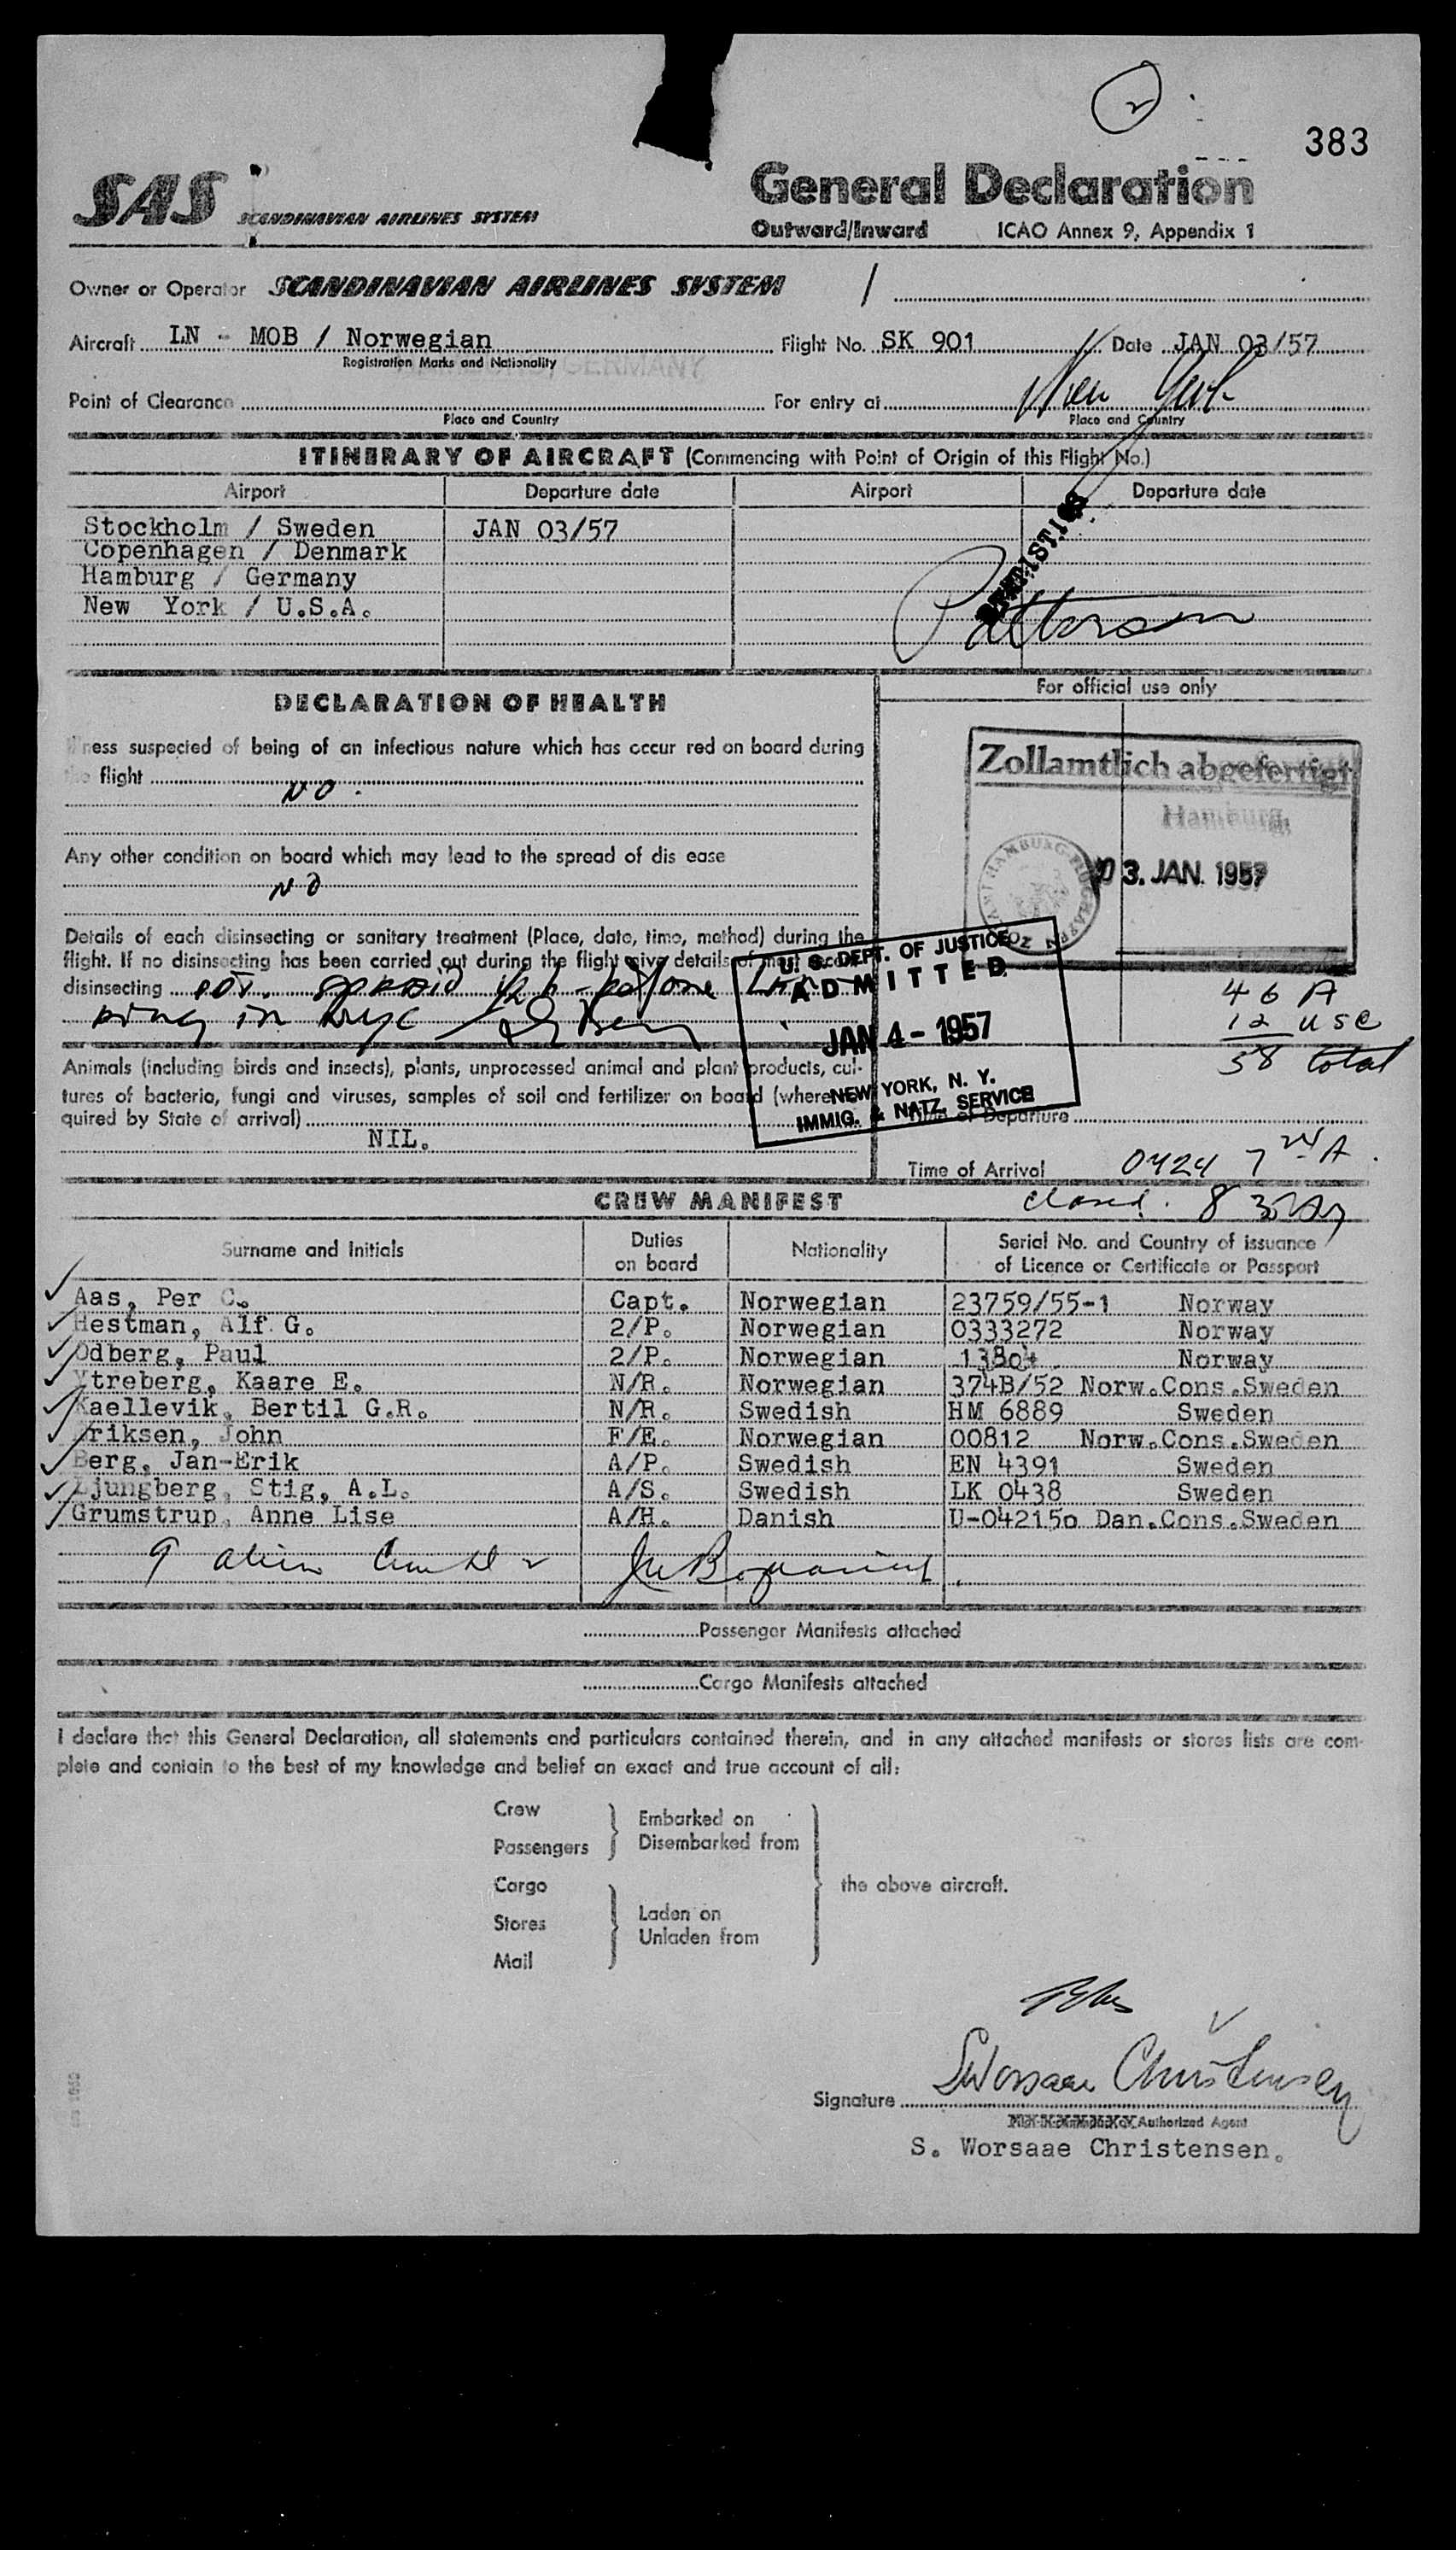 2
383
SAS SCANDINAVIAN AIRLINES SYSTEM
General Declaration
Outward/Inward ICAO Annex 9, Appendix 1
Owner or Operator SCANDINAVIAN AIRLINES SYSTEM /
Aircraft LN - MOB / Norwegian Flight No. SK 901 Date JAN 03/57
Registration Marks and Nationality
GERMANY
Point of Clearance For entry at New York
Place and Country Place and Country
ITINERARY OF AIRCRAFT (Commencing with Point of Origin of this Flight No.)
Airport Departure date Airport Departure date
Stockholm / Sweden JAN 03/57
Copenhagen / Denmark
Hamburg / Germany
New York / U.S.A.
Patterson
DECLARATION OF HEALTH
For official use only
ness suspected of being of an infectious nature which has occur red on board during
flight
NO.
Any other condition on board which may lead to the spread of dis ease
NO
Zollamtlich abgefertigt
Hamburg,
03. JAN. 1957
Details of each disinsecting or sanitary treatment (Place, date, time, method) during the
flight. If no disinsecting has been carried out during the flight give details of most
disinsecting
in nyc
U. S. DEPT. OF JUSTICE
ADMITTED
JAN 4 - 1957
NEW YORK, N. Y.
IMMIG. & NATZ. SERVICE
46 A
12 USC
58 total
Animals (including birds and insects), plants, unprocessed animal and plant products, cul-
tures of bacteria, fungi and viruses, samples of soil and fertilizer on board (where
quired by State of arrival)
NIL.
Time of Departure
Time of Arrival 0724 7 24 A.
closed. 8
CREW MANIFEST
Surname and Initials Duties on board Nationality Serial No. and Country of issuance of Licence or Certificate or Passport
Aas, Per C. Capt. Norwegian 23759/55-1 Norway
Hestman, Alf G. 2/P. Norwegian 0333272 Norway
Odberg, Paul 2/P. Norwegian 13804 Norway
Ytreberg, Kaare E. N/R. Norwegian 374B/52 Norw.Cons.Sweden
Kaellevik, Bertil G.R. N/R. Swedish HM 6889 Sweden
Eriksen, John F/E. Norwegian 00812 Norw.Cons.Sweden
Berg, Jan-Erik A/P. Swedish EN 4391 Sweden
Ljungberg, Stig, A.L. A/S. Swedish LK 0438 Sweden
Grumstrup, Anne Lise A/H. Danish U-042150 Dan.Cons.Sweden
9 alien
Passenger Manifests attached
Cargo Manifests attached
I declare that this General Declaration, all statements and particulars contained therein, and in any attached manifests or stores lists are com-
plete and contain to the best of my knowledge and belief an exact and true account of all:
Crew
Passengers
Embarked on
Disembarked from
Cargo
Stores
Mail
Laden on
Unladen from
the above aircraft.
Signature SWorsaae Christensen
Authorized Agent
S. Worsaae Christensen.